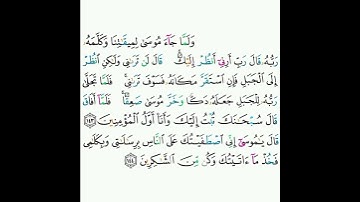 وَلَمَّا جَآءَ مُوسَىٰ لِمِيقَٰتِنَا وَكَلَّمَهُۥ
رَبُّهُۥ قَالَ رَبِّ أَرِنِىٓ أَنظُرْ إِلَيْكَ ۚ قَالَ لَن تَرَىٰنِى وَلَٰكِنِ ٱنظُرْ
إِلَى ٱلْجَبَلِ فَإِنِ ٱسْتَقَرَّ مَكَانَهُۥ فَسَوْفَ تَرَىٰنِى ۚ فَلَمَّا تَجَلَّىٰ
رَبُّهُۥ لِلْجَبَلِ جَعَلَهُۥ دَكًّا وَخَرَّ مُوسَىٰ صَعِقًا ۚ فَلَمَّآ أَفَاقَ
قَالَ سُبْحَٰنَكَ تُبْتُ إِلَيْكَ وَأَنَا۠ أَوَّلُ ٱلْمُؤْمِنِينَ ١٤٣
قَالَ يَٰمُوسَىٰٓ إِنِّى ٱصْطَفَيْتُكَ عَلَى ٱلنَّاسِ بِرِسَٰلَٰتِى وَبِكَلَٰمِى
فَخُذْ مَآ ءَاتَيْتُكَ وَكُن مِّنَ ٱلشَّٰكِرِينَ ١٤٤